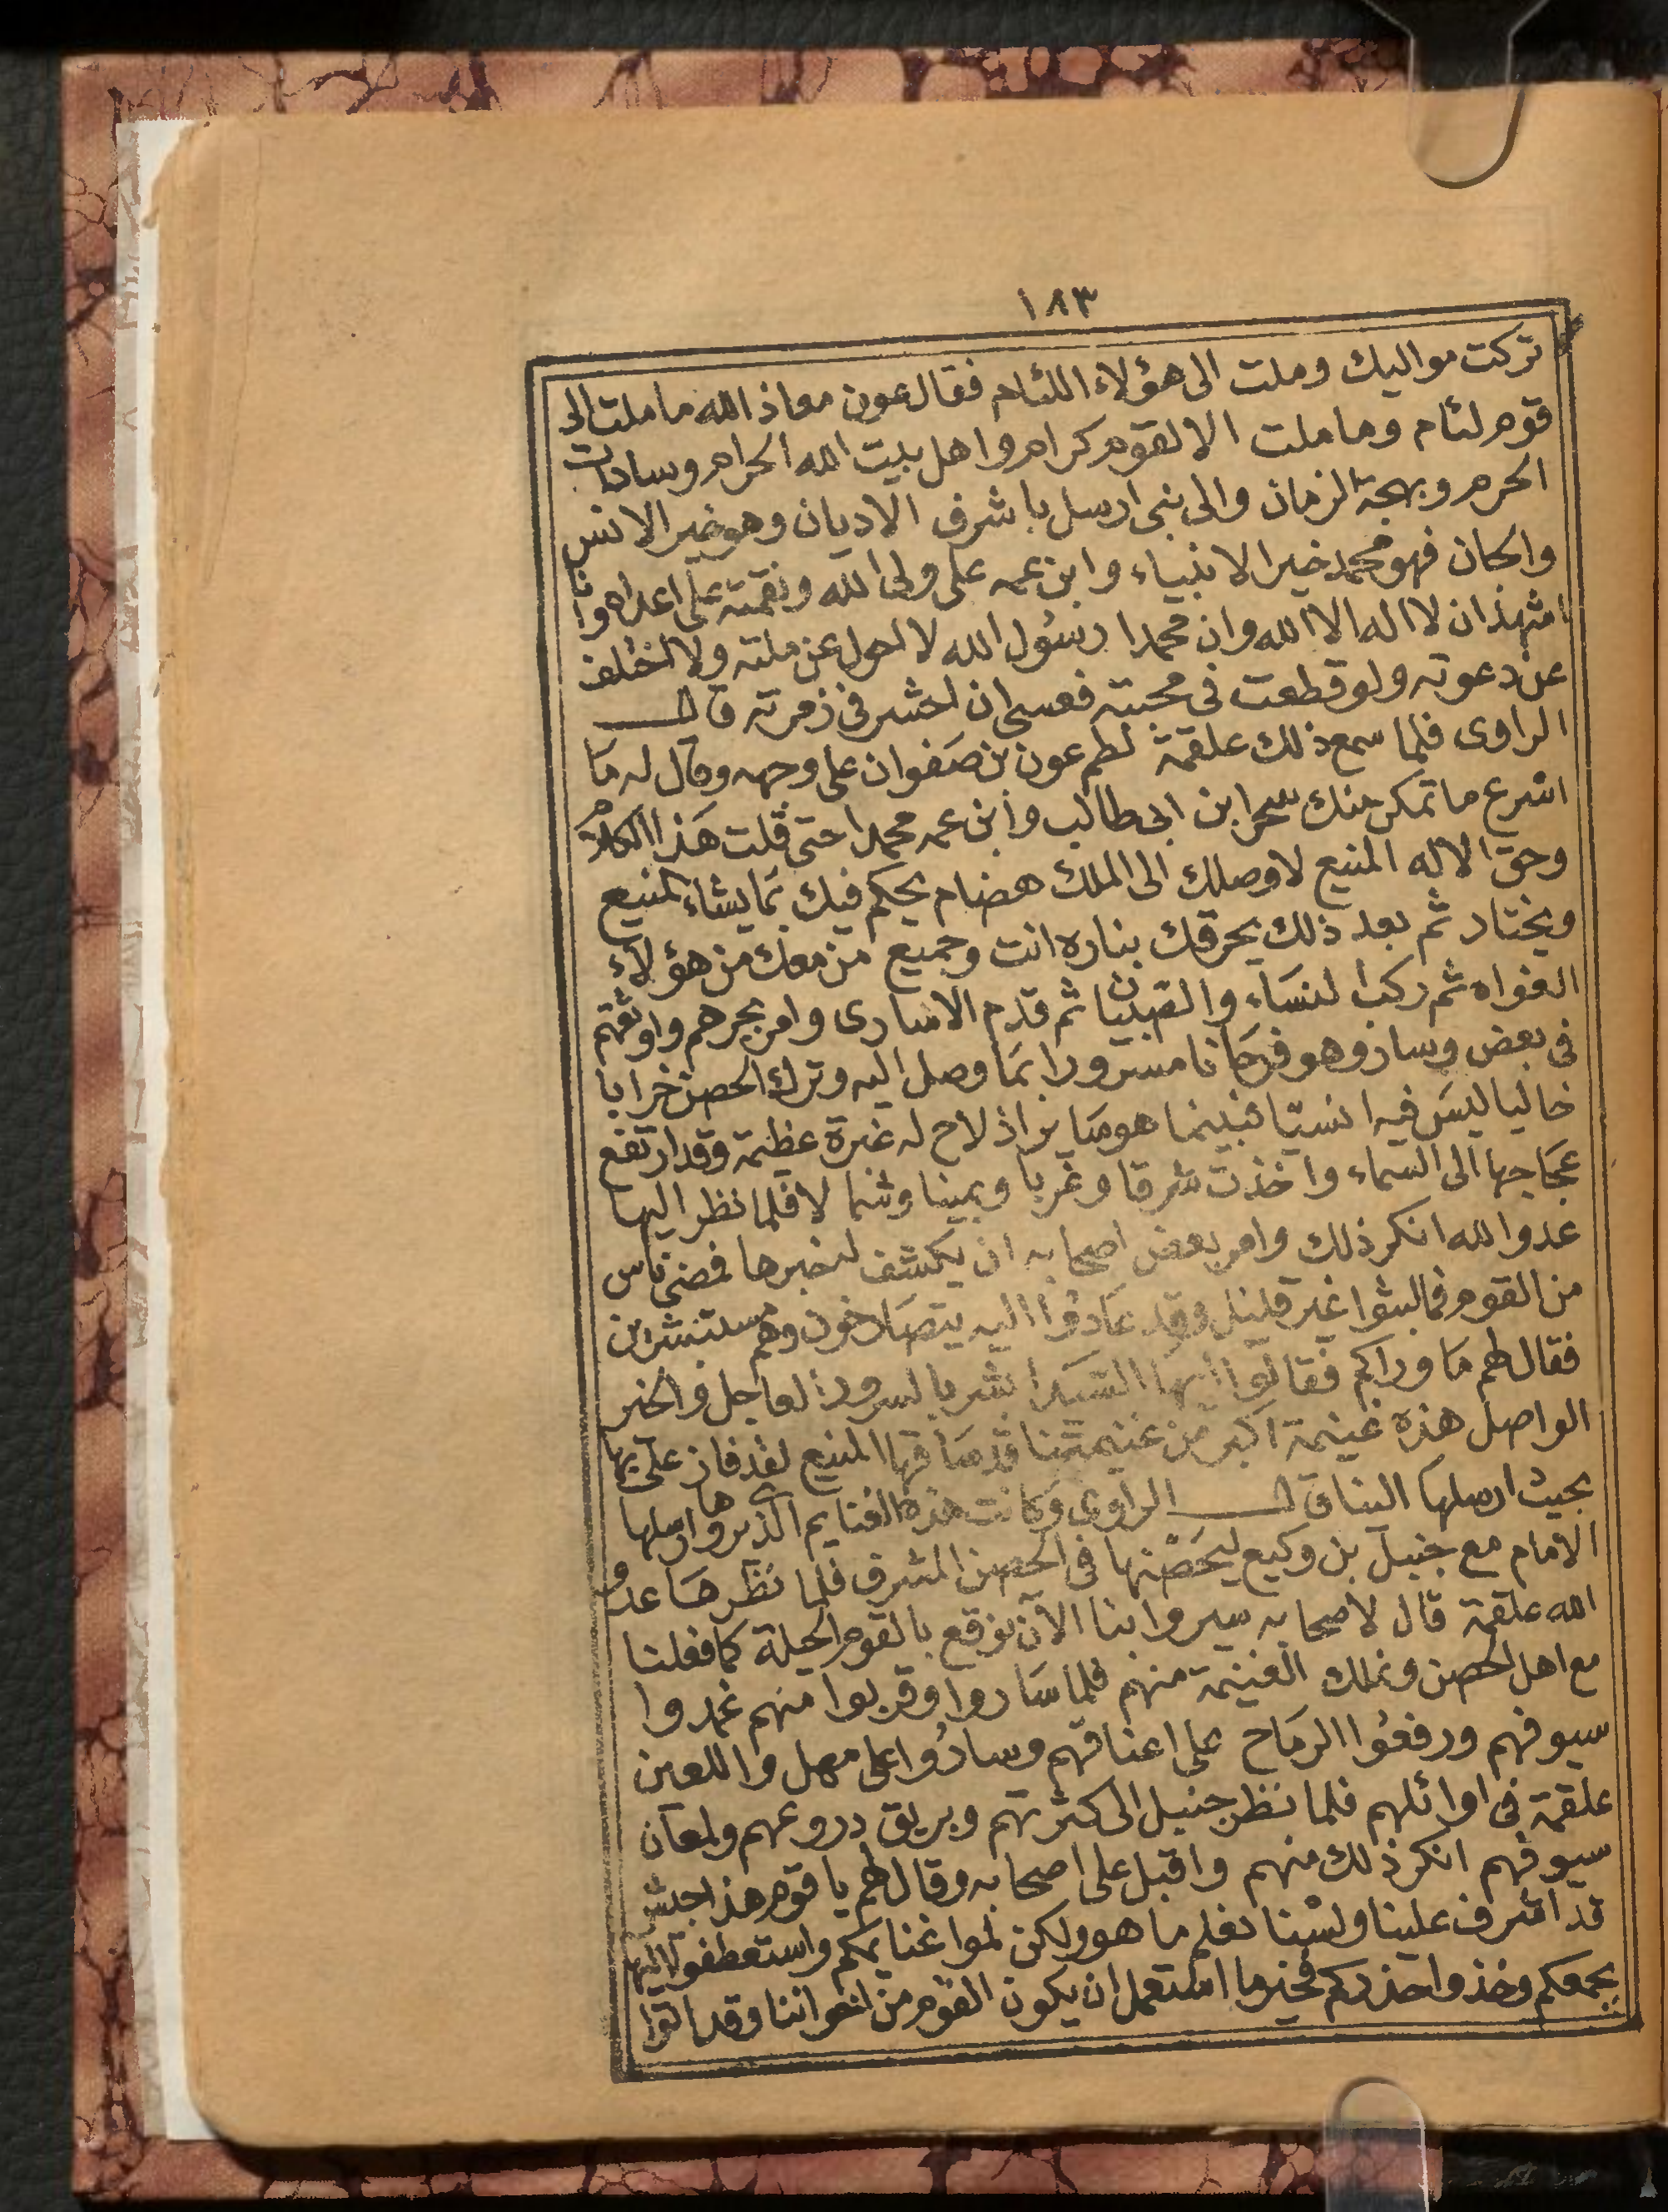 ١٨٣
تركت مواليك وملت الى هؤلاء اللئام فقال عون معاذ الله ما ملت الى
قوم لئام وما ملت الا لقوم كرام واهل بيت الله الحرام وسادات
الحرم وبهجة الزمان والى نبى ارسل باشرف الاديان وهو خير الانس
والجان فهو محمد خير الانبياء وابن عمه على ولى الله ونقمته على اعداه وانا
اشهد ان لا اله الا الله وان محمدا رسول الله لا احول عن ملته ولا اختلف
عن دعوته ولو قطعت فى محبته فعسى ان احشر فى زمرته قال
الراوى فلما سمع ذلك علقمة لطم عون بن صفوان على وجهه وقال له ما
اسرع ما تمكن منك سحر ابن ابى طالب وابن عمه محمدا حتى قلت هذا الكلام
وحق الاله المنيع لاوصلك الى الملك هضام يحكم فيك بما يشاء المنيع
ويختار ثم بعد ذلك يحرقك بناره انت وجميع من معك من هؤلاء
الغواه ثم ركب النساء والصبيان ثم قدم الاسارى وامر بجرهم واوثقهم
فى بعض وسار وهو فرحانا مسرورا بما وصل اليه وترك الحصن خرابا
خاليا ليس فيه انسيا فبينما هو سايرا اذ لاح له غبرة عظيمة وقد ارتفع
عجاجها الى السماء واخذت شرقا وغربا ويمينا وشمالا فلما نظر اليها
عدو الله انكر ذلك وامر بعض اصحابه ان يكشف لخبرها فمضى ناس
من القوم فما لبثوا غير قليل وقد عادوا اليه يتصارخون وهم مستبشرين
فقال لهم ما وراكم فقالوا ايها السيد ابشر بالسرور العاجل والخير
الواصل هذه غنيمة اكبر من غنيمتنا قد ساقها المنيع لقد فاز على بها
بحيث ارسلها الينا قال الراوى وكانت هذه الغنايم الذى ارسلها
الامام مع جنبل بن وكيع ليحصنها فى الحصن المشرف فلما نظرها عدو
الله علقمة قال لاصحابه سيروا بنا الآن نوقع بالقوم الحيلة كما فعلنا
مع اهل الحصن ونملك الغنيمة منهم فلما ساروا وقربوا منهم غمدوا
سيوفهم ورفعوا الرماح على اعناقهم وساروا على مهل واللعين
علقمة فى اوائلهم فلما نظر جنبل الى كثرتهم وبريق دروعهم ولمعان
سيوفهم انكر ذلك منهم واقبل على اصحابه وقال لهم يا قوم هذا جيش
قد اشرف علينا ولسنا نعلم ما هو ولكن لموا غنايمكم واستعطفوا اليها
بجمعكم وخذوا حذركم فخير ما استعمل ان يكون القوم من اخواننا وقد اتوا